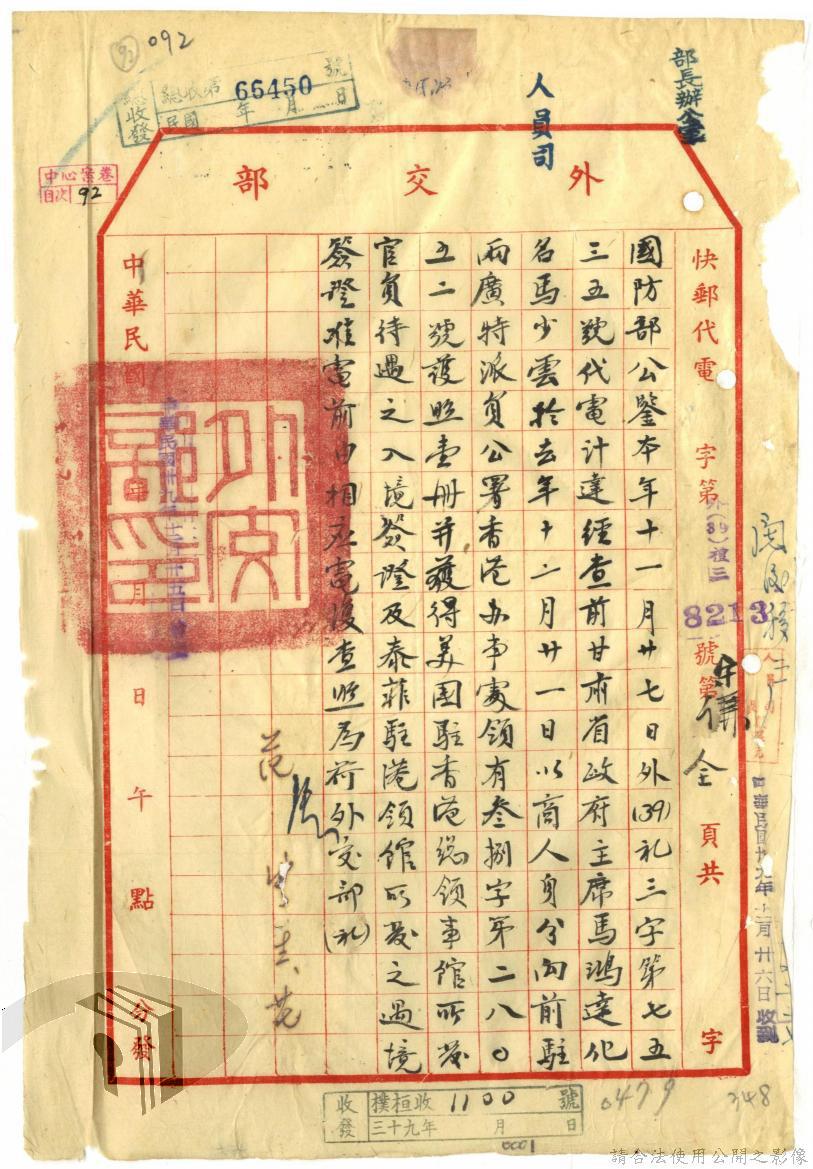 092
92
總收發
總收第66450號
民國 年 月 日
中心案卷
目次 92
部長辦公室
人員司
外交部
快郵代電
字第 號第 頁共 字
外(39)禮三
8213
國防部公鑒本年十一月廿七日外(39)礼三字第七五
三五號代電計達經查前甘肅省政府主席馬鴻達化
名馬少雲於去年十二月廿一日以商人身分向前駐
兩廣特派員公署香港办事處領有叁捌字第二八〇
五二號護照壹册并獲得美國駐香港總領事館所發
官員待遇之入境簽證及泰菲駐港領館所發之過境
簽證准電前由相應電復查照為荷外交部(礼)
中華民國 年 月 日 午 點 分發
中華民國卅九年十二月廿五日
中華民國卅九年十二月廿六日收到
收發
樸桓收1100號
三十九年 月 日
0001
0479
248
請合法使用公開之影像